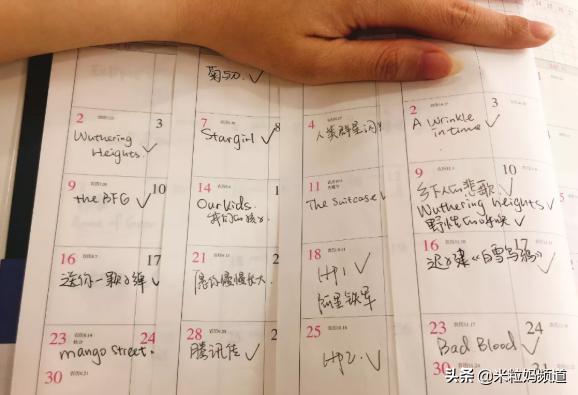 2 3
Wuthering
Heights.
9 10
the BFG
16 17
送你一颗子弹
23 24
mango street.
30
菊与刀.
7 8
Stargirl
14
Our kids.
我们的孩子
21
愿你慢慢长大
28
腾讯传
4
人类群星闪
11
The Suitcase
18
HP1
25
HP2.
2 3
A Wrinkle
in time
9 10
乡下人的悲歌
Wuthering heights
野性的呼唤
16 17
迟子建《白雪乌鸦》
23 24
Bad Blood
30
头条 @米粒妈频道